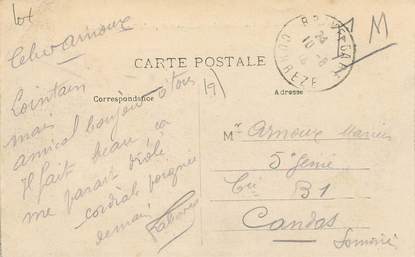 Cher Arnoux
CARTE POSTALE
Correspondance
Adresse
Lointain
mais
amical bonjour à tous
Il fait beau ça
me parait drôle
cordiale poignée
de main
Mr Arnoux
5e Génie
Cie B1
Candas
Somme
CORRÈZE
M